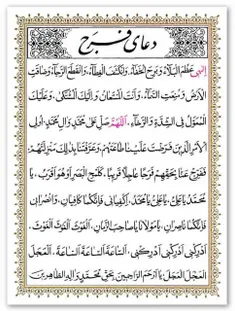 دعای فرج
اِلٰهی عَظُمَ الْبَلاَّءُ وَبَرِحَ الْخَفاَّءُ وَانْکَشَفَ الْغِطاَّءُ وَانْقَطَعَ الرَّجاَّءُ وَضاقَتِ
الْاَرْضُ وَمُنِعَتِ السَّماَّءُ وَاَنْتَ الْمُسْتَعانُ وَاِلَیْکَ الْمُشْتَکیٰ وَعَلَیْکَ
الْمُعَوَّلُ فِی الشِّدَّةِ وَالرَّخاَّءِ اَللّٰهُمَّ صَلِّ عَلیٰ مُحَمَّدٍ وَالِ مُحَمَّدٍ اُولِی
الْاَمْرِ الَّذینَ فَرَضْتَ عَلَیْنا طاعَتَهُمْ وَعَرَّفْتَنا بِذٰلِکَ مَنْزِلَتَهُمْ
فَفَرِّجْ عَنّا بِحَقِّهِمْ فَرَجًا عاجِلاً قَریبًا کَلَمْحِ الْبَصَرِ اَوْ هُوَ اَقْرَبُ یا
مُحَمَّدُ یا عَلِیُّ یا عَلِیُّ یا مُحَمَّدُ اِکْفِیانی فَاِنَّکُما کافِیانِ وَانْصُرانی
فَاِنَّکُما ناصِرانِ یا مَوْلانا یا صاحِبَ الزَّمانِ الْغَوْثَ الْغَوْثَ الْغَوْثَ
اَدْرِکْنی اَدْرِکْنی اَدْرِکْنی اَلسّاعَةَ اَلسّاعَةَ اَلسّاعَةَ اَلْعَجَلَ
اَلْعَجَلَ اَلْعَجَلَ یا اَرْحَمَ الرّاحِمینَ بِحَقِّ مُحَمَّدٍ وَالِهِ الطّاهِرینَ